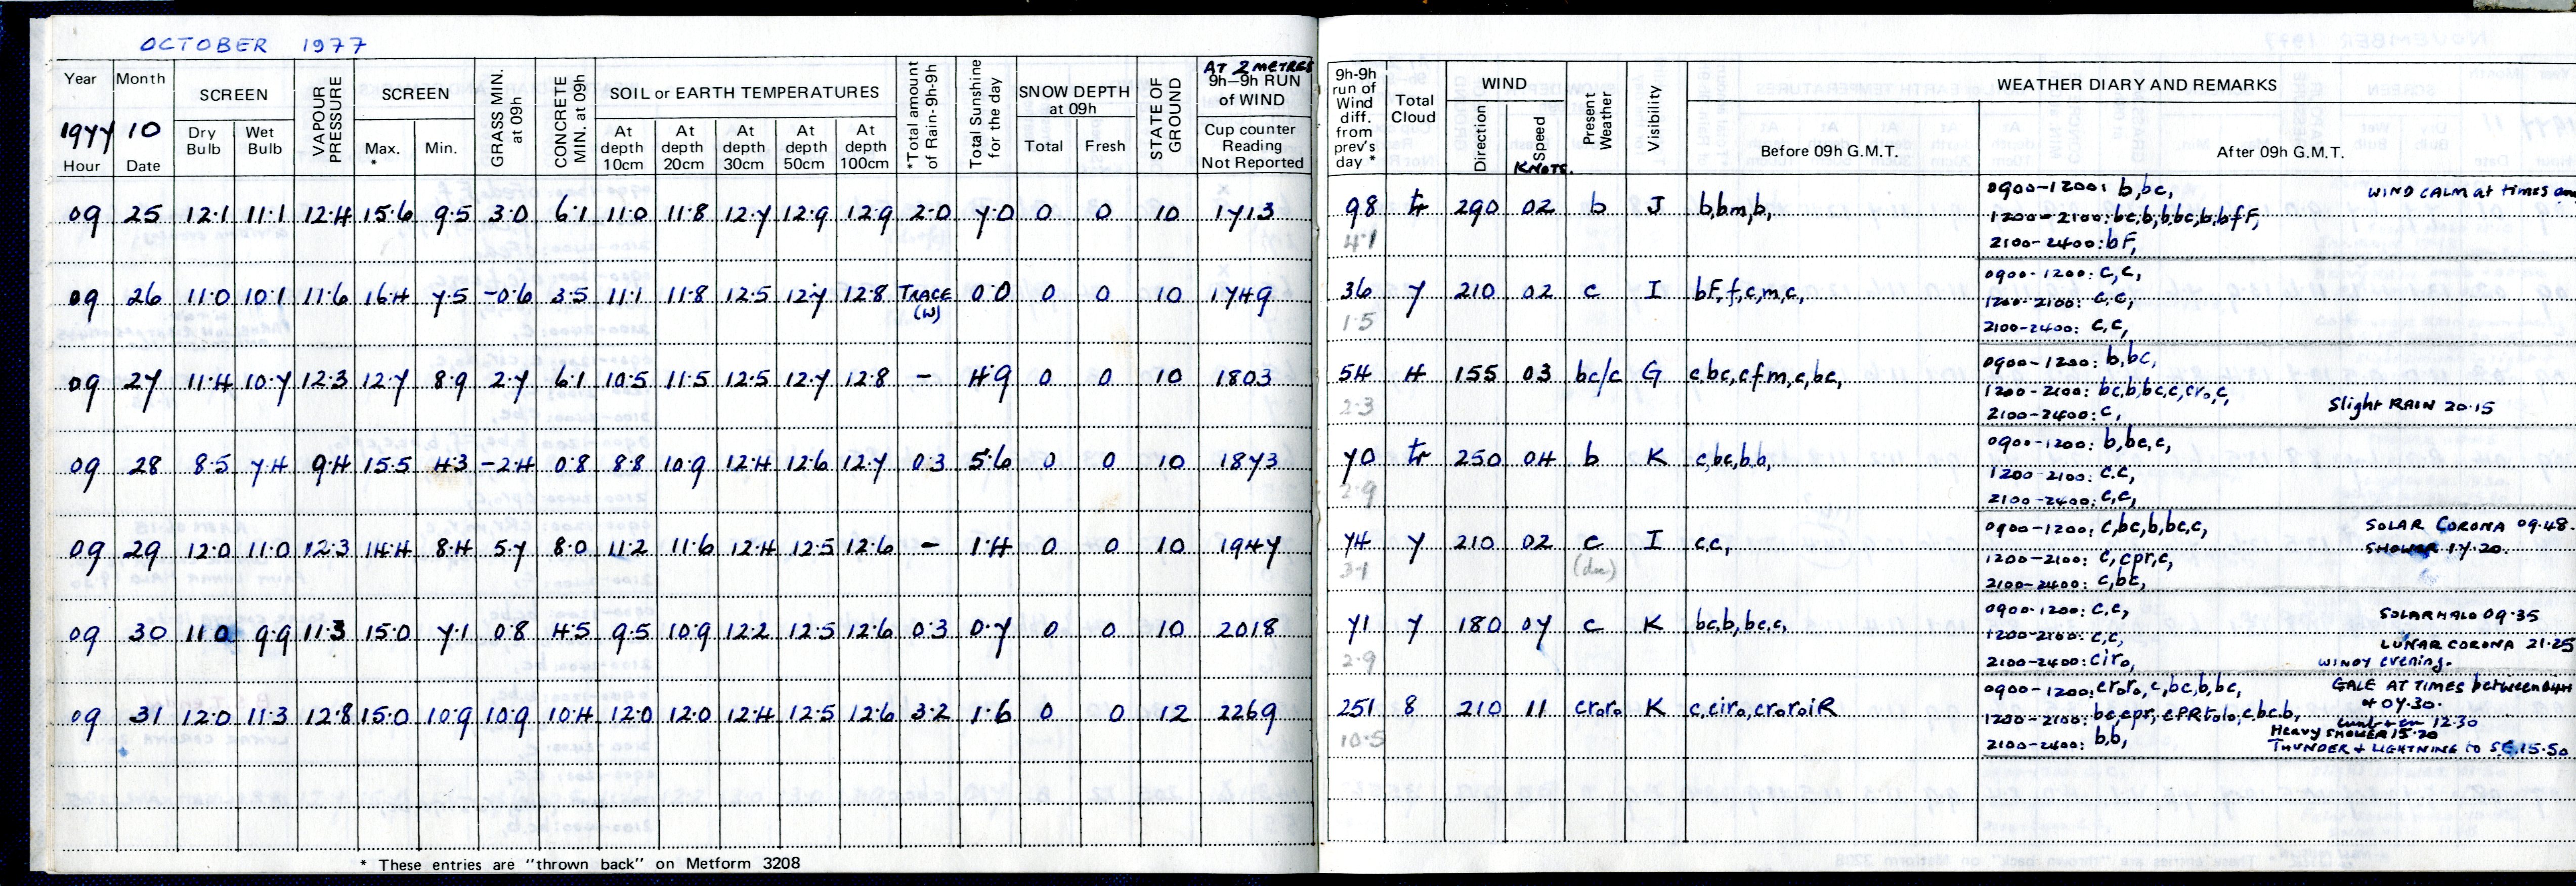 OCTOBER 1977
Year Month SCREEN VAPOUR PRESSURE SCREEN GRASS MIN. at 09h CONCRETE MIN. at 09h SOIL or EARTH TEMPERATURES *Total amount of Rain-9h-9h Total Sunshine for the day SNOW DEPTH at 09h STATE OF GROUND AT 2 METRES 9h-9h RUN of WIND
1977 10 Dry Bulb Wet Bulb Max. * Min. At depth 10cm At depth 20cm At depth 30cm At depth 50cm At depth 100cm Total Fresh Cup counter Reading Not Reported
Hour Date
09 25 12.1 11.1 12.4 15.6 9.5 3.0 6.1 11.0 11.8 12.7 12.9 12.9 2.0 7.0 0 0 10 1713
09 26 11.0 10.1 11.6 16.4 7.5 -0.6 3.5 11.1 11.8 12.5 12.7 12.8 TRACE (W) 0.0 0 0 10 1749
09 27 11.4 10.7 12.3 12.7 8.9 2.7 6.1 10.5 11.5 12.5 12.7 12.8 - 4.9 0 0 10 1803
09 28 8.5 7.4 9.4 15.5 4.3 -2.4 0.8 8.8 10.9 12.4 12.6 12.7 0.3 5.6 0 0 10 1873
09 29 12.0 11.0 12.3 14.4 8.4 5.7 8.0 11.2 11.6 12.4 12.5 12.6 - 1.4 0 0 10 1947
09 30 11.0 9.9 11.3 15.0 7.1 0.8 4.5 9.5 10.9 12.2 12.5 12.6 0.3 0.7 0 0 10 2018
09 31 12.0 11.3 12.8 15.0 10.9 10.9 10.4 12.0 12.0 12.4 12.5 12.6 3.2 1.6 0 0 12 2269
* These entries are "thrown back" on Metform 3208
9h-9h run of Wind diff. from prev's day * Total Cloud WIND Present Weather Visibility WEATHER DIARY AND REMARKS
Direction Speed KNOTS. Before 09h G.M.T. After 09h G.M.T.
98 tr 290 02 b J b,bm,b, 0900-1200: b,bc, WIND CALM at times
4.1 1200-2100: bc,b,b,bc,b,bfF,
2100-2400: bF,
36 7 210 02 c I bF,f,c,m,c, 0900-1200: c,c,
1.5 1200-2100: c,c,
2100-2400: c,c,
54 4 155 03 bc/c G c,bc,cfm,c,bc, 0900-1200: b,bc,
2.3 1200-2100: bc,b,bc,c,cro,c,
2100-2400: c, Slight RAIN 20.15
70 tr 250 04 b K c,bc,b,b, 0900-1200: b,bc,c,
2.9 1200-2100: c.c,
2100-2400: c,c,
74 7 210 02 c I c.c, 0900-1200: c,bc,b,bc,c, SOLAR CORONA 09.48.
3.1 1200-2100: c,cpr,c, SHOWER 17.20.
2100-2400: c,bc,
71 7 180 07 c K bc,b,bc,c, 0900-1200: c,c, SOLAR HALO 09.35
2.9 1200-2100: c,c, LUNAR CORONA 21.25
2100-2400: ciro, WINDY evening.
251 8 210 11 croro K c,ciro,croroiR 0900-1200: croro,c,bc,b,bc, GALE AT TIMES between 04H
10.5 + 07.30.
1200-2100: bc,cpr,cPRtolo,c,bc.b, 12.30
Heavy SHOWER 15.20
2100-2400: b,b, THUNDER + LIGHTNING to SE.15.50